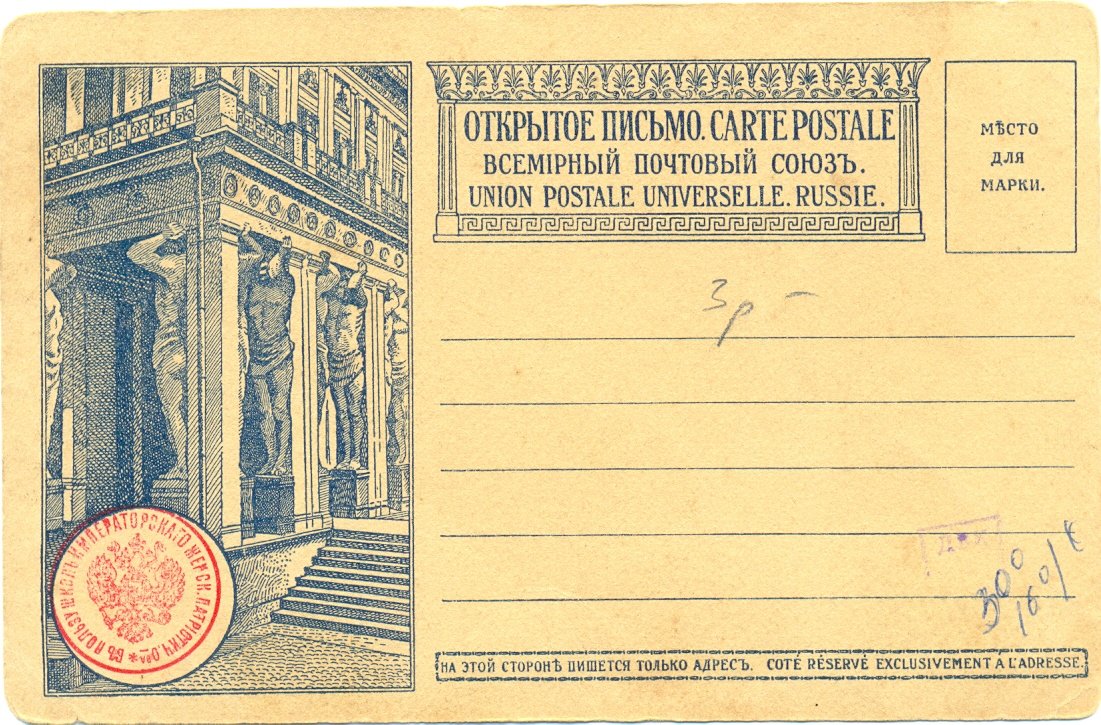 ОТКРЫТОЕ ПИСЬМО. CARTE POSTALE
ВСЕМІРНЫЙ ПОЧТОВЫЙ СОЮЗЪ.
UNION POSTALE UNIVERSELLE. RUSSIE.
МѢСТО
ДЛЯ
МАРКИ.
3р –
300
160/
ВЪ ПОЛЬЗУ ШКОЛЪ ИМПЕРАТОРСКАГО ЖЕНСК. ПАТРІОТИЧ. О-ВА *
НА ЭТОЙ СТОРОНѢ ПИШЕТСЯ ТОЛЬКО АДРЕСЪ. COTÉ RÉSERVÉ EXCLUSIVEMENT A L'ADRESSE.